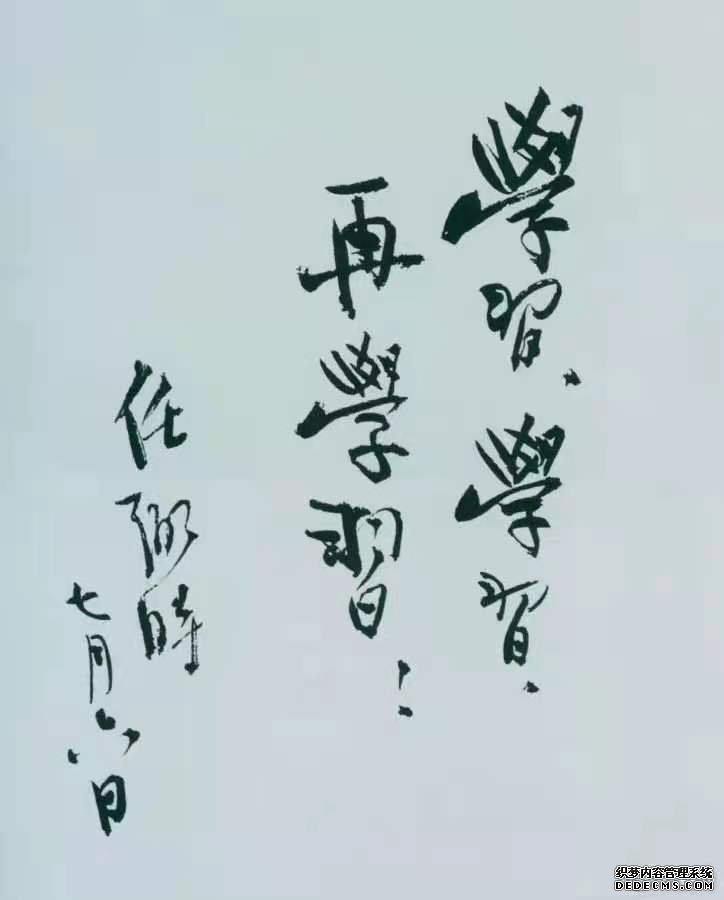 學習、學習.
再學習!
任弼時
七月六日
织梦内容管理系统
DEDECMS.COM